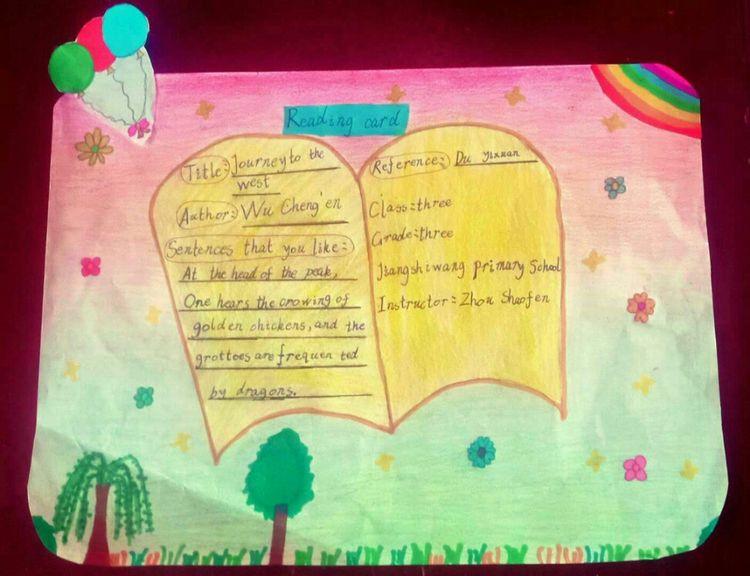 Reading card
Title: Journey to the
west
Author: Wu Cheng'en
Sentences that you like:
At the head of the peak,
One hears the crowing of
golden chickens, and the
grottoes are frequen ted
by dragons.
Reference: Du Yixuan
Class: three
Grade: three
Jiangshiwang primary School
Instructor: Zhou Shaofen